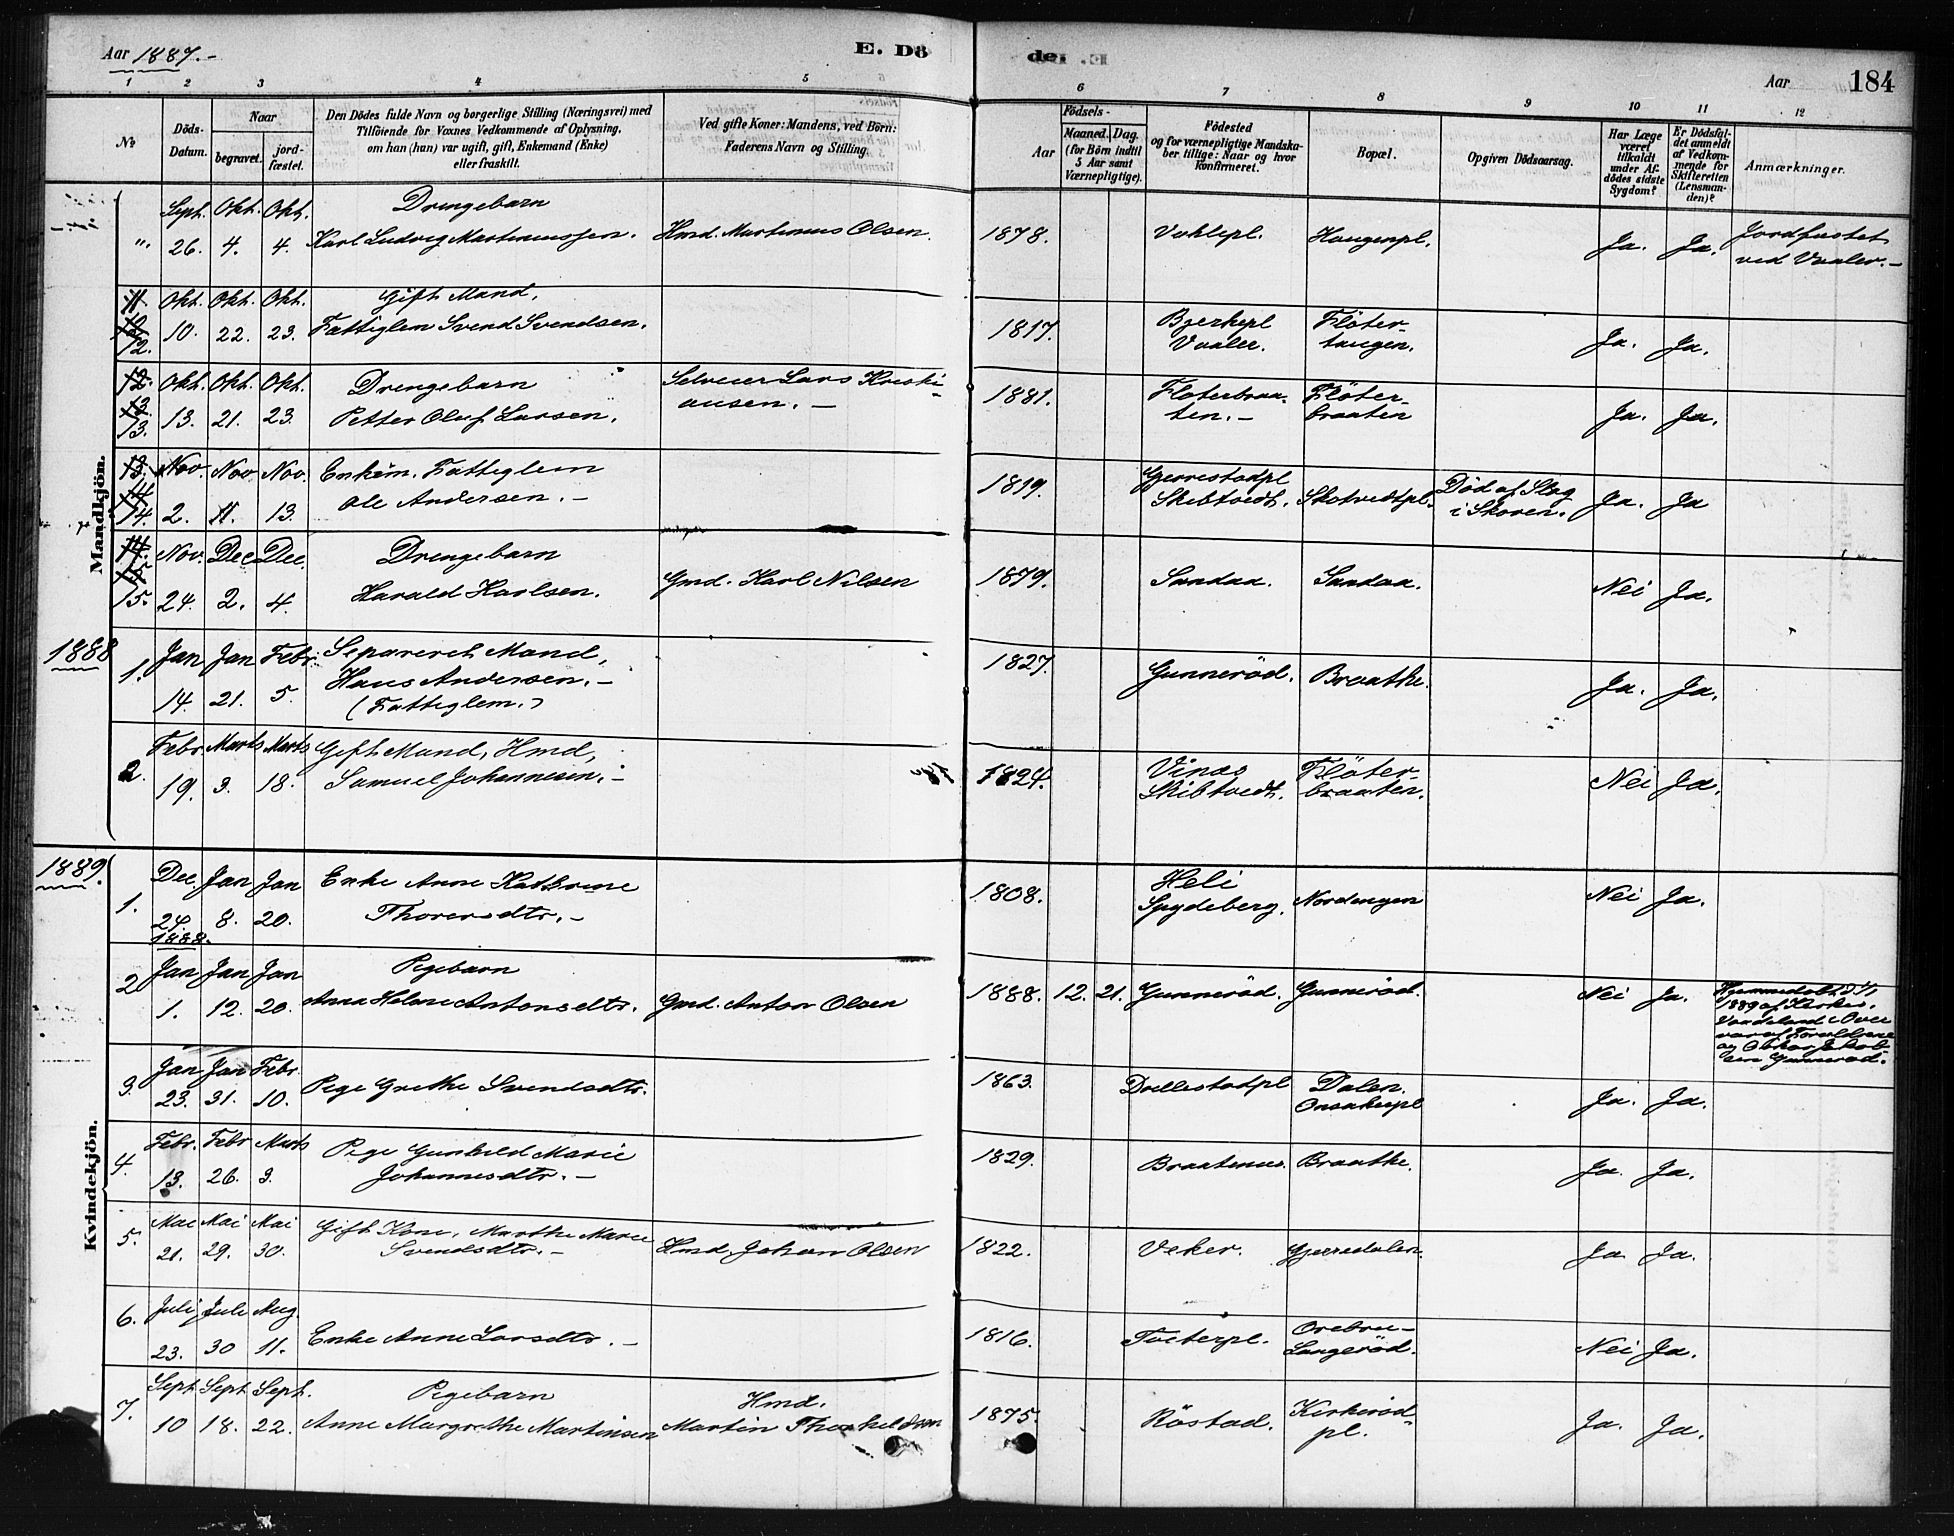 Aar 1887.-
E. Dö
1 2 3 4 5
№
Döds-Datum.
Naar
begravet.
jord-fæstet.
Den Dödes fulde Navn og borgerlige Stilling (Næringsvei) med
Tilföiende for Voxnes Vedkommende af Oplysning,
om han (hun) var ugift, gift, Enkemand (Enke)
eller fraskilt.
Ved gifte Koner: Mandens, ved Börn:
Faderens Navn og Stilling.
de.
Aar
184
6 7 8 9 10 11 12
Aar
Födsels-
Maaned. Dag.
(for Börn indtil
5 Aar samt
Værnepligtige).
Födested
og for værnepligtige Mandska-
ber tillige: Naar og hvor
konfirmeret.
Bopæl.
Opgiven Dödsaarsag.
Har Læge
været
tilkaldt
under Af-
dödes sidste
Sygdom?
Er Dödsfal-
det anmeldt
af Vedkom-
mende for
Skifteretten
(Lensman-
den)?
Anmærkninger.
Mandkjön.
" Sept. 26. Okt. 4. Okt. 4. Drengebarn
Karl Ludvig Martinussen. Hmd. Martinus Olsen. 1878. Vaklepl. Haugenpl. Ja. Ja. Jordfæstet
ved Vaaler.-
11 12 12. Okt. 10. Okt. 22. Okt. 23. Gift Mand,
Fattiglem Svend Svendsen. 1817. Bjerkepl Vaaler. Flöter-tangen. Ja. Ja.
12. 13. 13. Okt. 13. Okt. 21. Okt. 23. Drengebarn
Petter Oluf Larsen. Selveier Lars Kristi-
ansen.- 1881. Floterbraa-ten.- Flöter-braaten Ja. Ja.
13. 14. 14. Nov. 2. Nov 11. Nov. 13. Enkem. Fattiglem
Ole Andersen.- 1819. Gjerrestadpl Skibtvedt. Skotvedtpl. Död af Slag
i Skoven. Ja. Ja
14. 15. 15. Nov. 24. Dec 2. Dec. 4. Drengebarn
Harald Karlsen. Gmd. Karl Nilsen 1879. Sandaa. Sandaa. Nei Ja.
1888
1. Jan 14. Jan 21. Febr. 5. Separeret Mand,
Hans Andersen.-
(Fattiglem.) 1827. Gunneröd. Braathe. Ja. Ja.
2. Febr. 19. Marts 3. Marts 18. Gift Mand, Hmd,
Samuel Johannesen.- 1824. Vinas Skibtvedt. Flöter-braaten. Nei Ja.
1889.
Kvindekjön.
1. Dec. 24. 1888. Jan 8. Jan 20. Enke Anne Kathrine
Thorersdtr.- 1808. Heli Spydeberg. Nordengen Nei Ja.
2 Jan 1. Jan 12. Jan 20. Pigebarn
Anna Helene Antonsdtr. Gmd. Anton Olsen 1888. 12. 21. Gunneröd. Gunneröd. Nei Ja.
1889 af Kirkes.
af Forældrene
og Oskar Jakob-
sen Gunneröd.
3. Jan 23. Jan 31. Febr 10. Pige Grethe Svendsdtr. 1863. Dallestadpl Dalen. Onsakerpl Ja. Ja.
4. Febr. 13. Febr 26. Marts 3. Pige Gunhild Marie
Johannesdtr.- 1829. Braatenus. Braathe. Ja. Ja.
5. Mai 21. Mai 29. Mai 30. Gift Kone, Marthe Marie
Svendsdtr.- Hmd. Johan Olsen 1822. Veker. Gjerredalen. Ja Ja.
6. Juli 23. Juli 30 Aug. 11. Enke Anne Larsdtr.- 1816. Toterpl. Orebru-Langeröd. Nei Ja.
7. Sept 10 Sept 18. Sept. 22. Pigebarn
Anne Margrethe Martinsen Hmd.
Martin Thorkeldsen 1875. Röstad. Kirkeröd-pl. Ja. Ja.